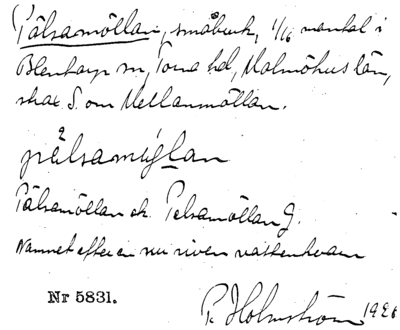 Pälsamöllan, småbruk, 1/16 mantal i
Blentarp sn, Torna hd, Malmöhus län,
strax S. om Mellanmöllan.
pä²lsamiglan
Pälsamöllan ek. Pelsamöllan J.
Namnet efter en nu riven vattenkvarn
Nr 5831.
P. Holmström 1926